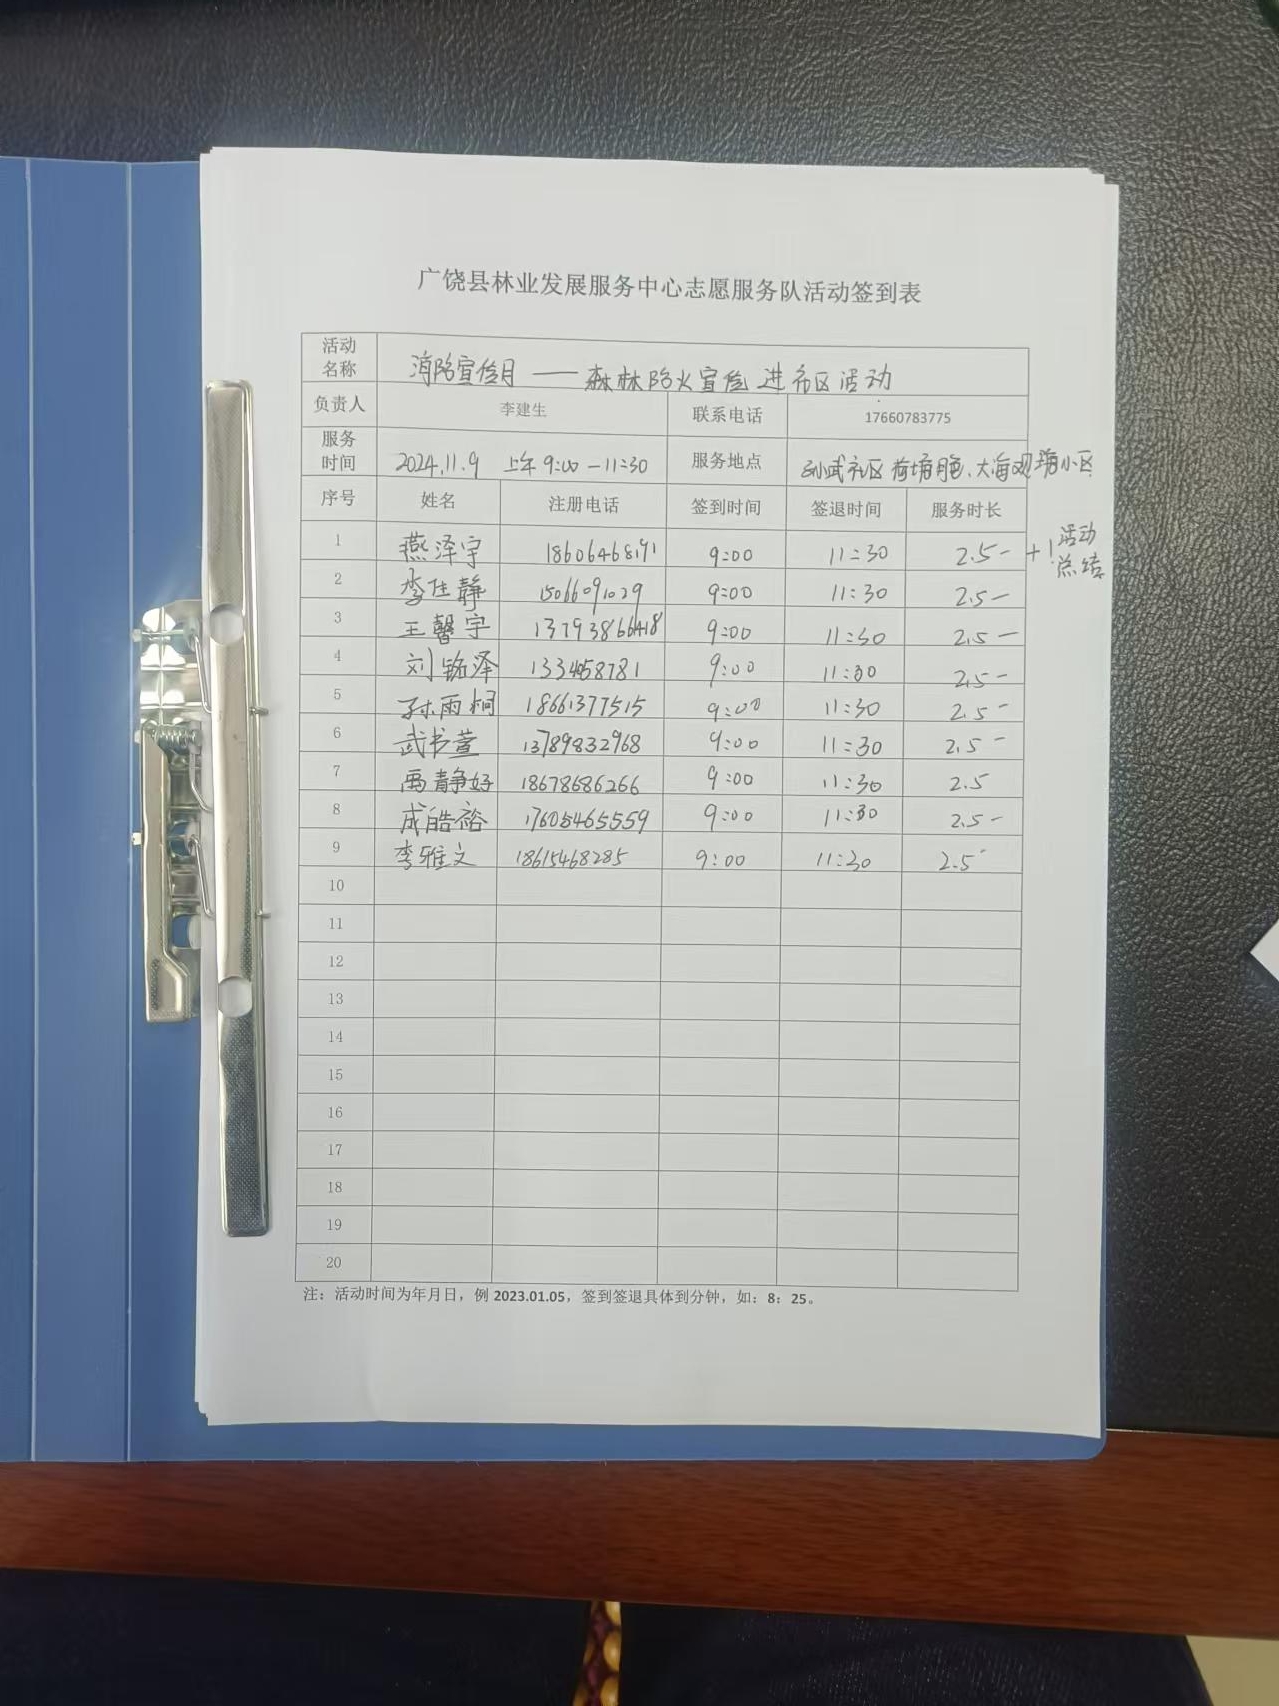 广饶县林业发展服务中心志愿服务队活动签到表
活动名称 消防宣传月——森林防火宣传进社区活动
负责人 李建生 联系电话 17660783775
服务时间 2024.11.9 上午9:00-11:30 服务地点 孙武社区 大海观塘小区
序号 姓名 注册电话 签到时间 签退时间 服务时长
1 燕泽宇 9:00 11:30 2.5- +1 活动总结
2 李仕静 15066091029 9:00 11:30 2.5-
3 王馨宇 13793866418 9:00 11:30 2.5-
4 刘铭泽 9:00 11:30 2.5-
5 孙雨桐 18661377515 9:00 11:30 2.5-
6 武书萱 13789832968 9:00 11:30 2.5-
7 禹静好 18678686266 9:00 11:30 2.5
8 成皓裕 17605465559 9:00 11:30 2.5-
9 李雅文 18615468285 9:00 11:30 2.5-
10
11
12
13
14
15
16
17
18
19
20
注：活动时间为年月日，例 2023.01.05，签到签退具体到分钟，如：8：25。